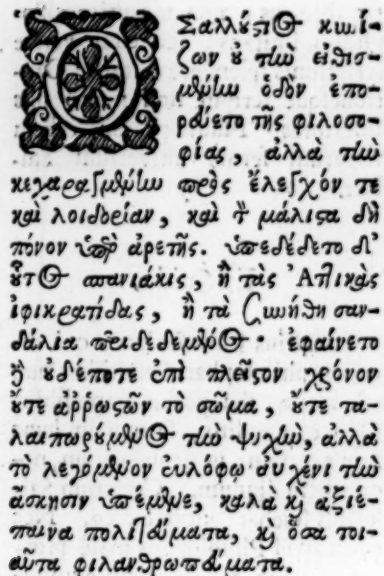 Ὁ Σαλλούστιος κυνί-
ζων οὐ τὴν εἰθισ-
μένην ὁδὸν ἐπο-
ρεύετο τῆς φιλοσο-
φίας, ἀλλὰ τὴν
κεχαραγμένην πρὸς ἔλεγχόν τε
καὶ λοιδορίαν, καὶ τὸν μάλιστα δὴ
πόνον ὑπὲρ ἀρετῆς. ὑπεδέδετο δ'
οὗτος σπανιάκις, ἢ τὰς Ἀττικὰς
ἰφικρατίδας, ἢ τὰ συνήθη σαν-
δάλια περιδεδεμένος· ἐφαίνετο
καὶ οὐδέποτε ἐπὶ πλεῖστον χρόνον
οὔτε ἀῤῥωστῶν τὸ σῶμα, οὔτε τα-
λαιπωρούμενος τὴν ψυχὴν, ἀλλὰ
τὸ λεγόμενον εὐλόφῳ αὐχένι τὴν
ἄσκησιν ὑπέμενε, καλὰ καὶ ἀξιέ-
παινα πολιτεύματα, καὶ ὅσα τοι-
αῦτα φιλανθρωπεύματα.